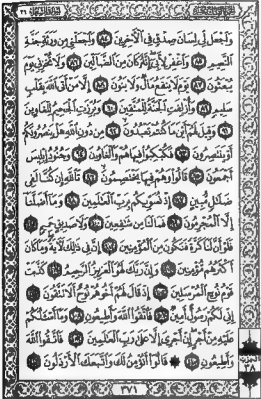 وَاجْعَل لِّي لِسَانَ صِدْقٍ فِي الْآخِرِينَ ٨٤ وَاجْعَلْنِي مِن وَرَثَةِ جَنَّةِ
النَّعِيمِ ٨٥ وَاغْفِرْ لِأَبِي إِنَّهُ كَانَ مِنَ الضَّالِّينَ ٨٦ وَلَا تُخْزِنِي يَوْمَ
يُبْعَثُونَ ٨٧ يَوْمَ لَا يَنفَعُ مَالٌ وَلَا بَنُونَ ٨٨ إِلَّا مَنْ أَتَى اللَّهَ بِقَلْبٍ
سَلِيمٍ ٨٩ وَأُزْلِفَتِ الْجَنَّةُ لِلْمُتَّقِينَ ٩٠ وَبُرِّزَتِ الْجَحِيمُ لِلْغَاوِينَ
٩١ وَقِيلَ لَهُمْ أَيْنَ مَا كُنتُمْ تَعْبُدُونَ ٩٢ مِن دُونِ اللَّهِ هَلْ يَنصُرُونَكُمْ
أَوْ يَنتَصِرُونَ ٩٣ فَكُبْكِبُوا فِيهَا هُمْ وَالْغَاوُونَ ٩٤ وَجُنُودُ إِبْلِيسَ
أَجْمَعُونَ ٩٥ قَالُوا وَهُمْ فِيهَا يَخْتَصِمُونَ ٩٦ تَاللَّهِ إِن كُنَّا لَفِي
ضَلَالٍ مُّبِينٍ ٩٧ إِذْ نُسَوِّيكُم بِرَبِّ الْعَالَمِينَ ٩٨ وَمَا أَضَلَّنَا
إِلَّا الْمُجْرِمُونَ ٩٩ فَمَا لَنَا مِن شَافِعِينَ ١٠٠ وَلَا صَدِيقٍ حَمِيمٍ ١٠١
فَلَوْ أَنَّ لَنَا كَرَّةً فَنَكُونَ مِنَ الْمُؤْمِنِينَ ١٠٢ إِنَّ فِي ذَٰلِكَ لَآيَةً وَمَا كَانَ
أَكْثَرُهُم مُّؤْمِنِينَ ١٠٣ وَإِنَّ رَبَّكَ لَهُوَ الْعَزِيزُ الرَّحِيمُ ١٠٤ كَذَّبَتْ
قَوْمُ نُوحٍ الْمُرْسَلِينَ ١٠٥ إِذْ قَالَ لَهُمْ أَخُوهُمْ نُوحٌ أَلَا تَتَّقُونَ ١٠٦
إِنِّي لَكُمْ رَسُولٌ أَمِينٌ ١٠٧ فَاتَّقُوا اللَّهَ وَأَطِيعُونِ ١٠٨ وَمَا أَسْأَلُكُمْ
عَلَيْهِ مِنْ أَجْرٍ إِنْ أَجْرِيَ إِلَّا عَلَىٰ رَبِّ الْعَالَمِينَ ١٠٩ فَاتَّقُوا اللَّهَ
وَأَطِيعُونِ ١١٠ ۞ قَالُوا أَنُؤْمِنُ لَكَ وَاتَّبَعَكَ الْأَرْذَلُونَ ١١١
٣٨
٣٧١